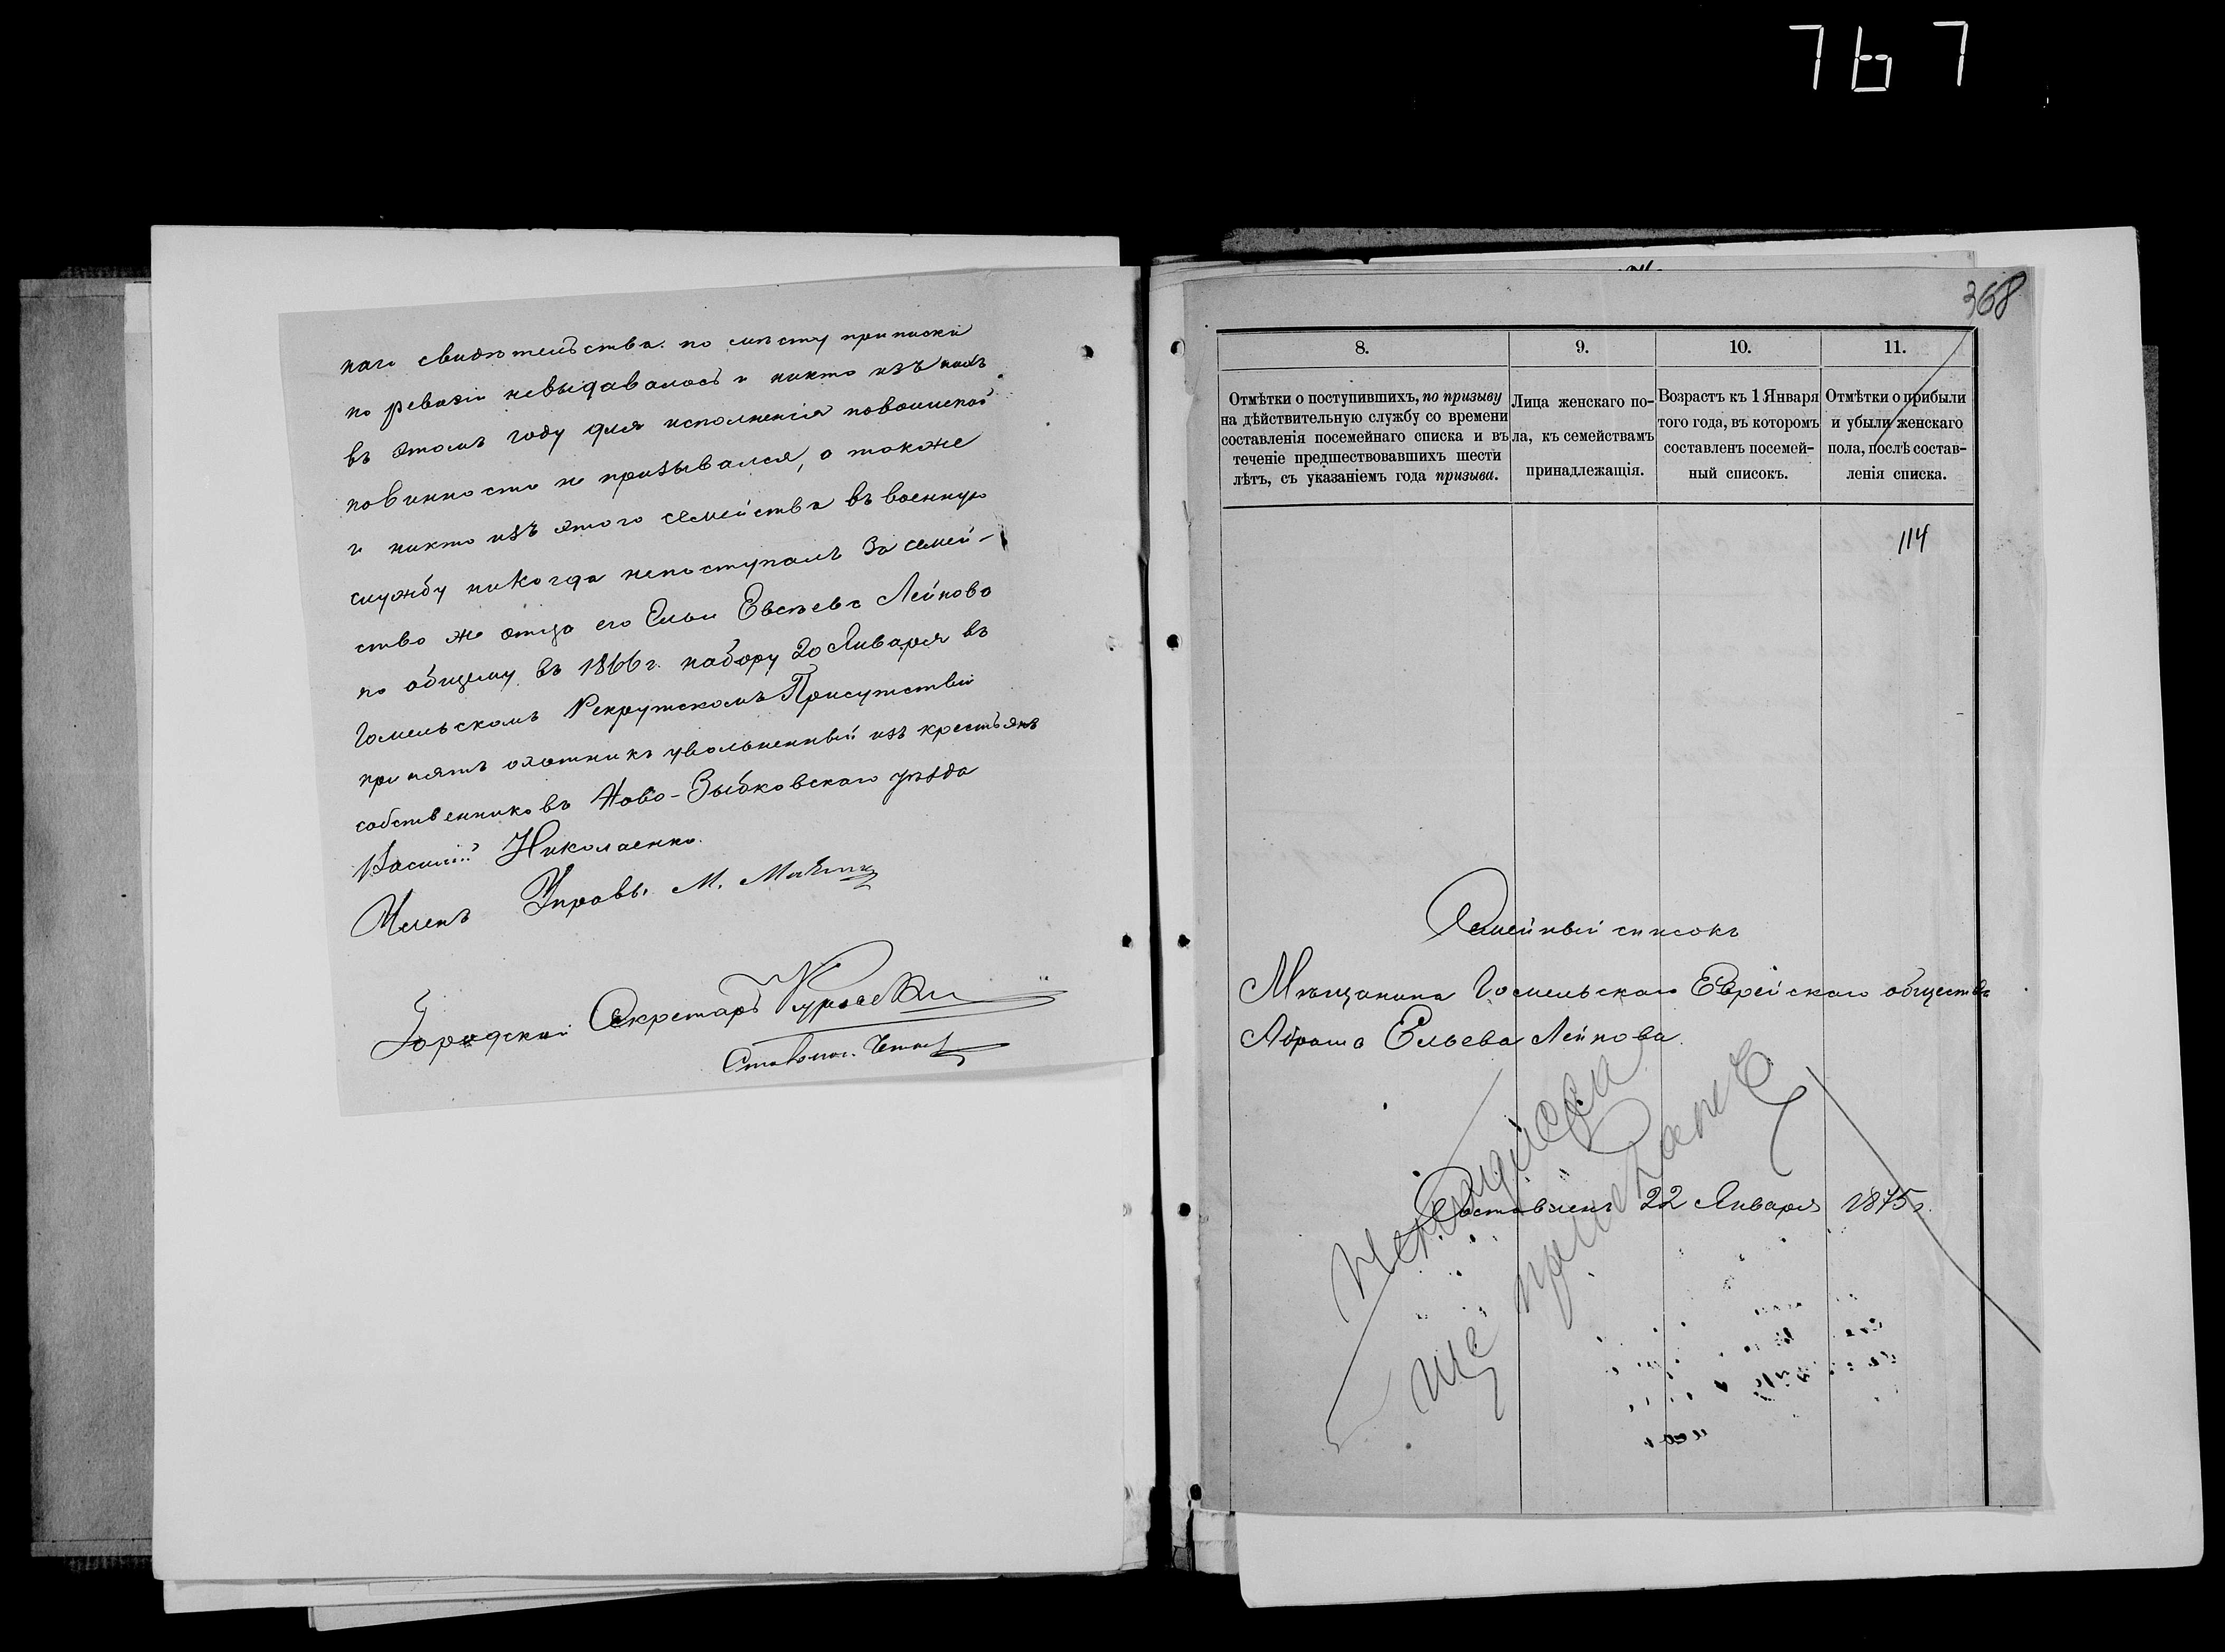 767
наго свидѣтельства по мѣсту приписки
по ревизіи невыдавалось и никто изъ нихъ
въ этомъ году для исполненія повоинской
повинности не призывался, а также
и никто изъ этого семейства въ военную
службу никогда непоступалъ За семей-
ство же отца его Ельи Евсѣева Лейнова
по общему въ 1866 г. набору 20 Января въ
Гомельскомъ Рекрутскомъ Присутствіи
принятъ охотникъ уволенный изъ крестьянъ
собственниковъ Ново-Зыбковскаго уѣзда
Василій Николаенко.
Членъ Управы М.
Городской Секретарь
368
8. 9. 10. 11.
Отмѣтки о поступившихъ, по призыву
на дѣйствительную службу со времени
составленія посемейнаго списка и въ
теченіе предшествовавшихъ шести
лѣтъ, съ указаніемъ года призыва.
Лица женскаго по-
ла, къ семействамъ
принадлежащія.
Возрастъ къ 1 Января
того года, въ которомъ
составленъ посемей-
ный списокъ.
Отмѣтки о прибыли
и убыли женскаго
пола, послѣ состав-
ленія списка.
114
Семейный списокъ
Мѣщанина Гомельскаго Еврейскаго общества
Абрама Ельева Лейнова.
Составленъ 22 Января 1875 г.